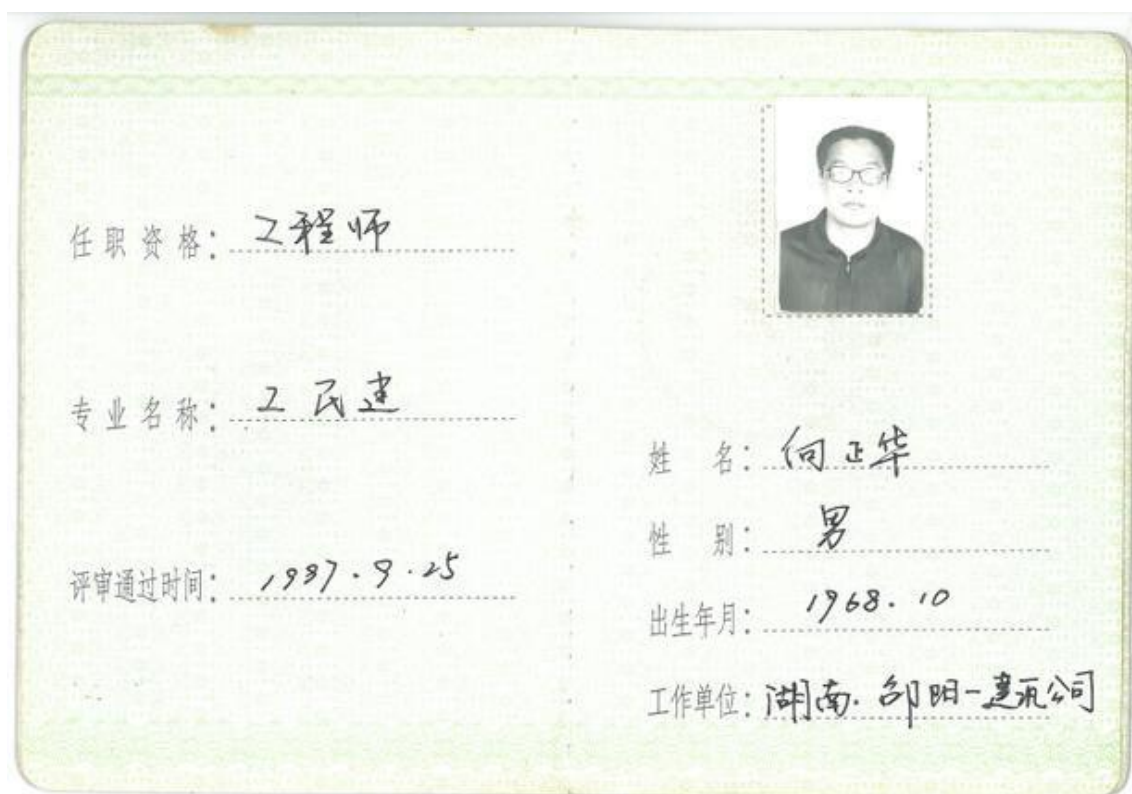 任职资格：工程师
专业名称：工民建
评审通过时间：1997.9.25
姓名：向正华
性别：男
出生年月：1968.10
工作单位：湖南.邵阳一建筑公司